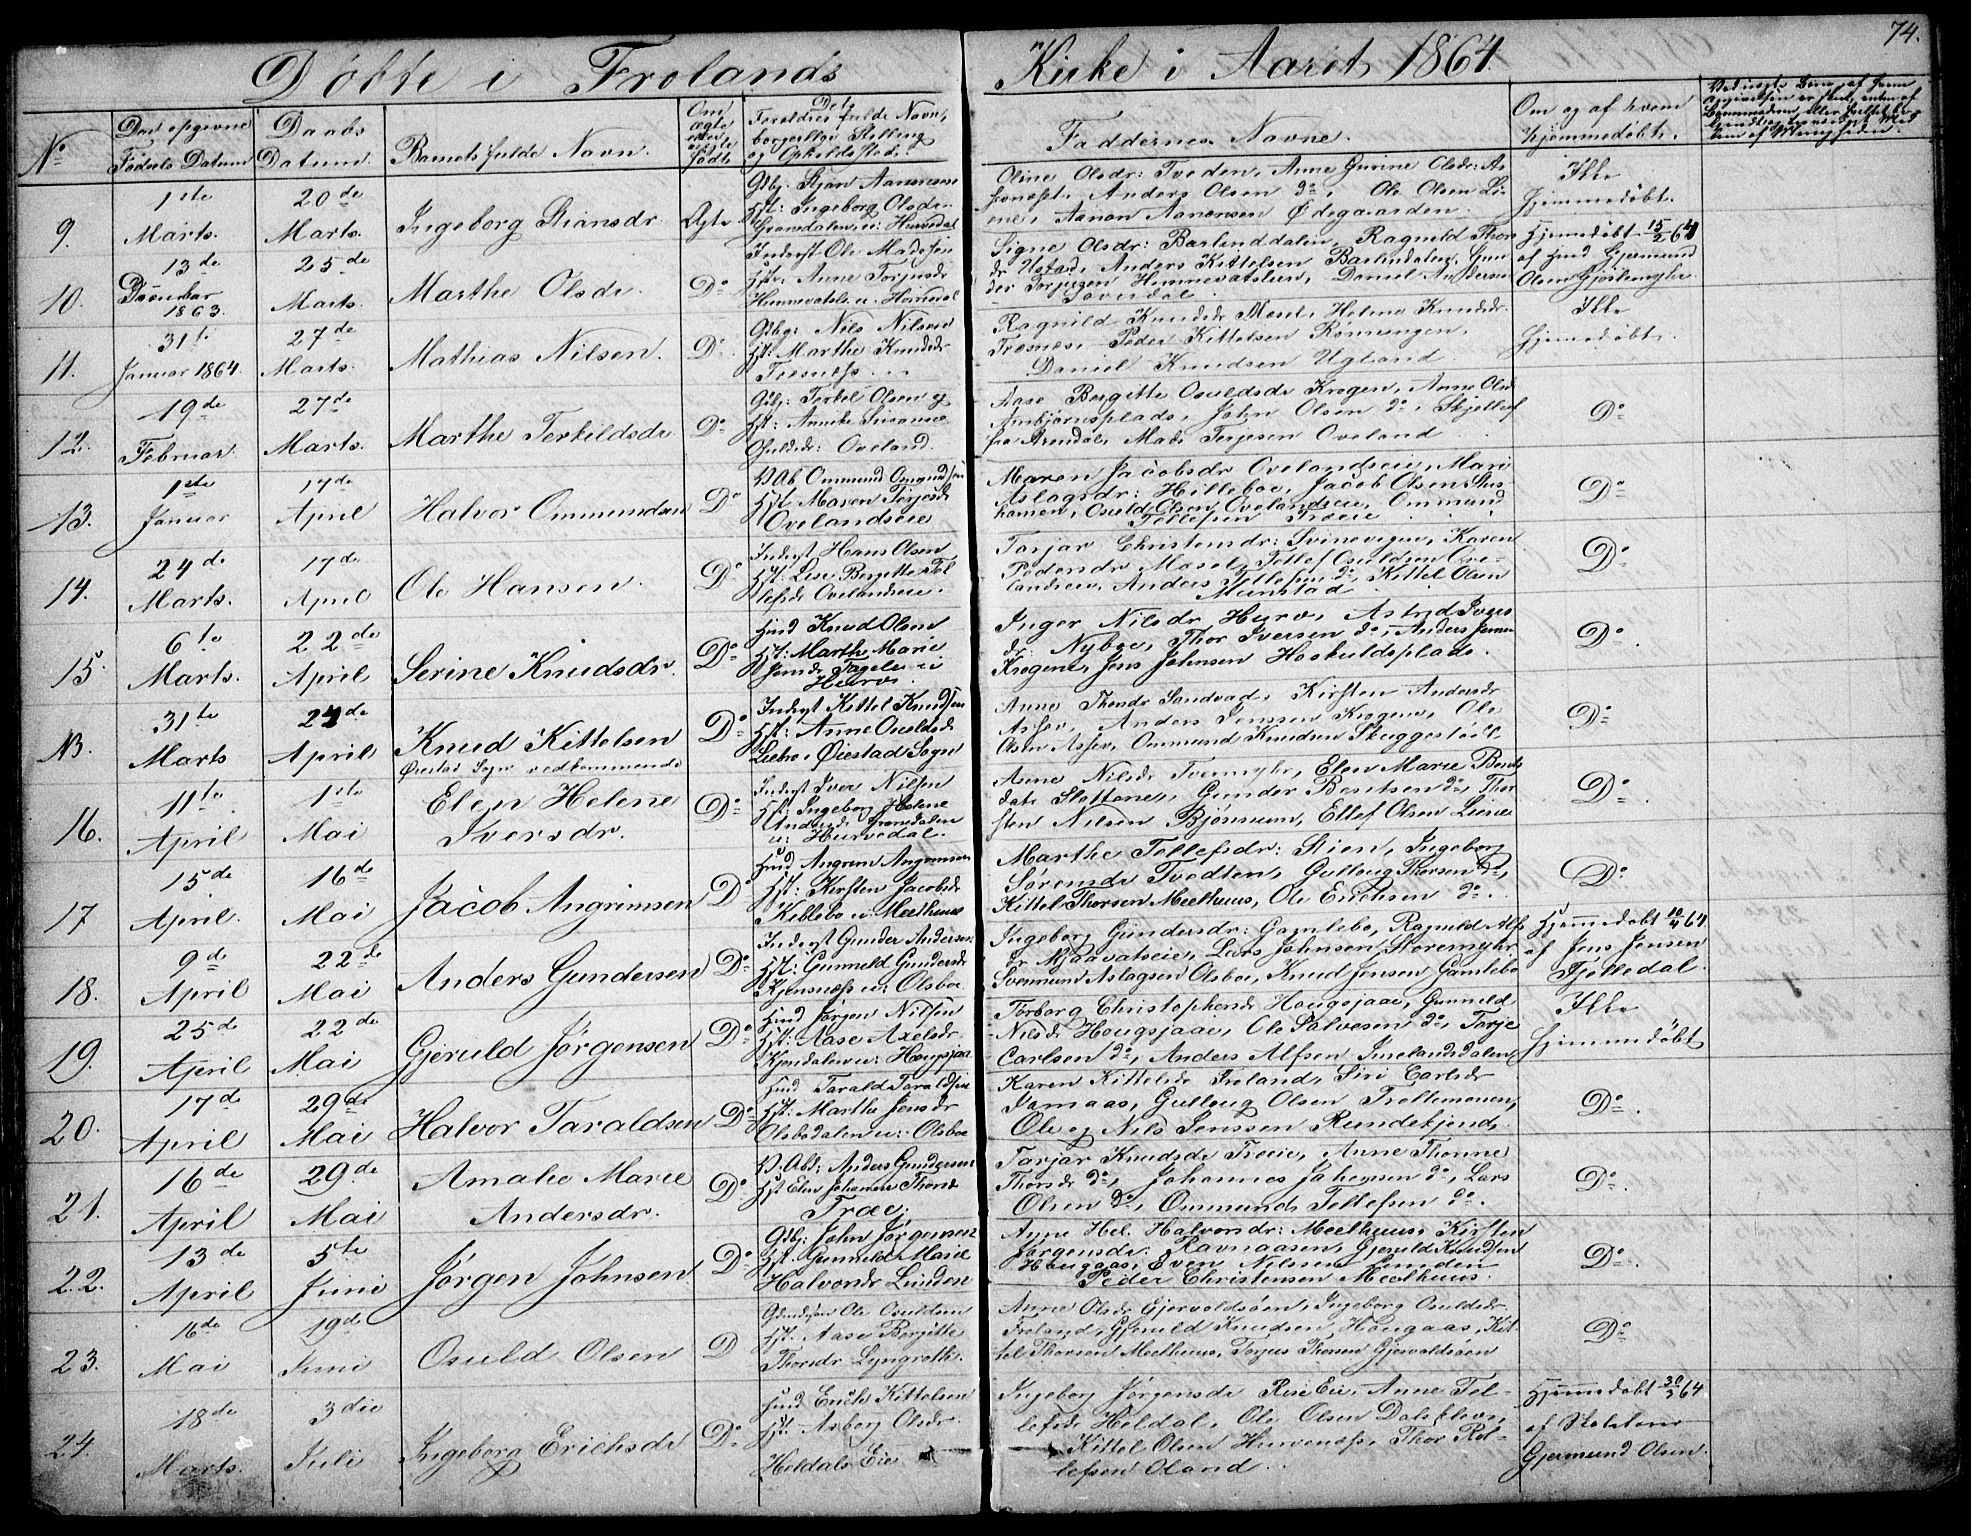 74.
Døbte i Frolands Kirke i Aaret 1864
No
Den opgivne
Fødsels Datum
Daabs
Datum
Barnets fulde Navn.
Om
ægte
eller
uægte
født
Dets
Forældres fulde Navn,
borgerlige Stilling
og Opholdssted.
Faddernes Navne.
Om og af hvem
hjemmedøbt.
9.
1ste
Marts.
20de
Marts.
Ingeborg Stiansdr
Ægte
Gbj. Stian Aanensen
Hst: Ingeborg Olsdr
Gransdalen u: Hurvedal
Oline Olsdr: Tveden, Anne Gurine Olsdr:
Anders Olsen do Ole Olsen Li-
ene, Aanon Aanonsen Ødegaarden.
Ikke
hjemmedøbt.
10.
13de
December
1863.
25de
Marts.
Marthe Olsdr.
Do
Inderst Ole Madssen
Hst: Anne Terjesdr
Signe Olsdr: Barlinddalen, Ragnild Thors
dr Ustad, Anders Kittelsen Barlindalen, Gun
der Torjusen Himmevatslien, Daniel Andersen
Hjemmedøbt 15/2 64
af Hmd Gjermund
Olsen
11.
31te
Januar 1864.
27de
Marts.
Mathias Nilsen.
Do
Gbg: Nils Nilsen
Hst: Marthe Knudsdr
Tresnæs.
Ragnild Knudsdr Mosel, Helene Knudsdr.
Tresnæs, Peder Kittelsen Rønningen,
Daniel Knudsen Ugland.
Ikke
hjemmedøbt.
12.
19de
Februar.
27de
Marts.
Marthe Terkildsdr
Do
Gbj: Terkel Olsen og
Hst: Annike Susanne
Osuldsdr: Oveland.
Aase Bergitte Osuldsdr Krogen, Anne Olsdr
Ambjørnsplads, John Olsen do, Skjellef
fra Arendal, Mads Terjesen Oveland.
Do
13.
1ste
Januar
17de
April
Halvor Ommundsen
Do
Ommund Omundsen
Hst: Maren Terjesdr
Ovelandseie
Maren Jacobsdr Ovelandseie, Mari
Aslagsdr: Hilleboe, Jacob Olsen
Osuld Olsen Ovelandseie, Ommund
Tellefsen Træeie
Do
14.
24de
Marts.
17de
April
Ole Hansen.
Do
Inderst Hans Olsen
Hst: Lise Bergitte Tel
lefsdr Ovelandseie.
Tarjer Christensdr: Svinevigen, Karen
Pedersdr Mosel, Tellef Osuldsen Ove-
landseie, Anders Tellefsen do, Kittel Olsen
Munstad
Do
15.
6te
Marts.
22de
April
Serine Knudsdr.
Do
Hmd Knud Olsen
Hst: Marthe Marie
Hurv.
Inger Nilsdr Hurv, Astrid Ivers
dr: Nyboe, Thor Iversen do, Anders Jensen
Krogene, Jens Johnsen Haskuldsplads.
Do.
NB.
31te
Marts
24de
April
Knud Kittelsen
Øiestad Sogn vedkommende
Do
Inderst Kittel Knudsen
Hst: Anne Osuldsdr
Øiestad Sogn
Anne Thordr Sandvad, Kirsten Andersdr
Assev, Anders Jenssen Krogene, Ole
Olsen Assev, Ommund Knudsen Skuggestøel
Do
16.
11te
April
1ste
Mai
Elen Helene
Iversdr.
Do
Inderst Iver Nilsen
Hst. Ingeborg Helene
Andersdr Gransdalen
u: Hurvedal.
Anne Nilsdr Tvermyhr, Elen Marie Bents
datr Slettene, Gunder Bentsen do, Thor
sten Nilsen Bjørnum, Ellef Olsen Liene
Do.
17
15de
April.
16de
Mai
Jacob Angrimsen
Do
Hmd Angrim Angrimsen
Hst: Kirsten Jacobsdr
Keblebo u: Meelhuus
Marthe Tellefsdr: Stien, Ingeborg
Sørensdr Tvedten, Gulloug Thorsen do,
Kittel Thorsen Meelhuus, Ole Erichsen do.
Do
18.
9de
April
22de
Mai
Anders Gundersen
Do
Inderst Gunder Andersen
Hst: Gunneld Gundersdr
Kjensnæss u: Olsboe
Ingeborg Gundersdr: Gamlebo, Ragnild Alfs
dr Mjaavatseie, Lars Johnsen Storemyhr
Svennund Aslagsen Olsboe, Knud Jensen Gamlebo
Hjemmedøbt 10/4 64
af Jens Jensen
Tjelledal.
19.
25de
April
22de
Mai
Gjeruld Jørgensen
Do
Hmd Jørgen Nilsen
Hst: Aase Axelsdr
Kjendalen u: Hougsjaa
Torborg Christophersdr Hougsjaae, Gunneld
Nilsdr Hougsjaae, Ole Salvesen do, Terje
Carlsen do, Anders Alfsen Imelandsdalen
Ikke
hjemmedøbt
20.
17de
April
29de
Mai
Halvor Taraldsen
Do
Hmd Tarald Taraldsen
Hst: Marthe Jensdr
Olsbodalen u: Olsboe
Karen Kittelsdr Froland, Siri Carlsdr
Jamaas, Gulloug Olsen Trollemonen,
Ole og Nils Jenssen Rundekjend.
Do.
21.
16de
April
29de
Mai
Amalie Marie
Andersdr.
Do
P. Abd: Anders Gundersen
Hst Elen Johanne Thorsdr
Træe.
Tarjer Knudsdr Træeie, Anne Thonne
Thorsdr do, Johannes Johensen do, Lars
Olsen do, Ommund Tellefsen do.
Do.
22.
13de
April
5te
Juni
Jørgen Johnsen
Do
Gbj: John Jørgensen
Hst. Gunneld Marie
Halvorsdr Linden
Anne Hel. Halvorsdr: Meelhuus, Kirsten
Jørgensdr: Ravnaasen, Gjeruld Knudsen
Hougaas, Even Nilsen Linden
Peder Christensen Meelhuus.
Do.
23.
16de
Mai
19de
Juni
Osuld Olsen
D
Ole Osuldsen
Hst. Aase Bergitte
Thorsdr Lyngroth.
Anne Olsdr Gjervoldsøen, Ingeborg Osuldsdr
Froland, Gjeruld Knudsen Hougaas, Kit
tel Thorsen Meelhuus, Torjus Thorsen Gjervoldsøen
Do
24.
18de
Marts.
3die
Juli
Ingeborg Erichsdr
Do
Hmd Erich Kittelsen
Hst: Asborg Olsdr.
Heldals Eie
Ingeborg Jørgensdr Rise Eie, Anne Tel-
lefsdr Heldal, Ole Olsen Dalsklev,
Kittel Olsen Hurvenæs, Thor Rol-
lefsen Oland.
Hjemmedøbt 30/3 64
af Skolelærer
Gjermund Olsen.